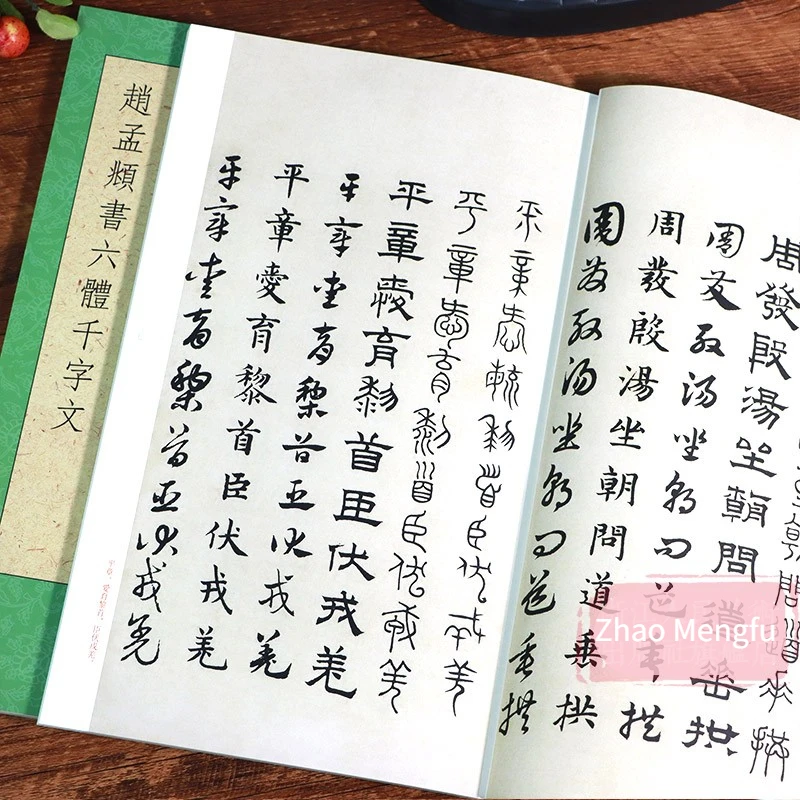 趙孟頫書六體千字文
周發殷湯坐朝問道垂拱
周發殷湯坐朝問道垂拱
周發殷湯坐朝問道垂拱
周發殷湯坐朝問道垂拱
平章愛育黎首臣伏戎羌
平章愛育黎首臣伏戎羌
平章愛育黎首臣伏戎羌
平章愛育黎首臣伏戎羌
平章愛育黎首臣伏戎羌
平章愛育黎首臣伏戎羌
平章。愛育黎首,臣伏戎羌。
Zhao Mengfu